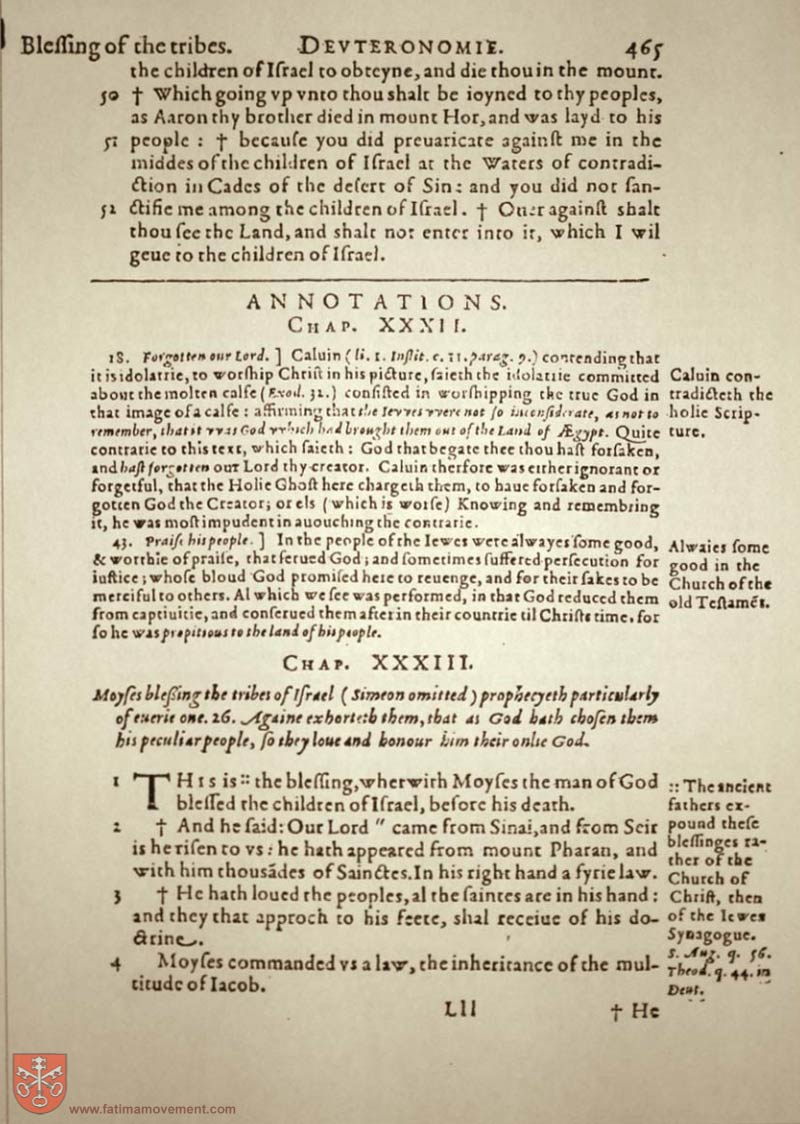 Bleſſing of the tribes. DEVTERONOMIE. 465
the children of Iſrael to obteyne, and die thou in the mount.
50 † Which going vp vnto thou ſhalt be ioyned to thy peoples,
as Aaron thy brother died in mount Hor, and was layd to his
51 people : † becauſe you did preuaricate againſt me in the
middes of the children of Iſrael at the Waters of contradi-
ction in Cades of the deſert of Sin: and you did not ſan-
52 ctifie me among the children of Iſrael. † Ouer againſt ſhalt
thou ſee the Land, and ſhalt not enter into it, which I wil
geue to the children of Iſrael.
ANNOTATIONS.
CHAP. XXXII.
18. Forgotten our Lord. ] Caluin (li. 1. Inſtit. c. 11. parag. 9.) contending that
it is idolatrie, to worſhip Chriſt in his picture, ſaieth the idolatrie committed
about the molten calfe (Exod. 32.) conſiſted in worſhipping the true God in
that image of a calfe : affirming that the Ievves vvere not ſo inconſiderate, as not to
remember, that it vvas God vvhich had brought them out of the Land of Ægypt. Quite
contrarie to this text, which ſaieth : God that begate thee thou haſt forſaken,
and haſt forgotten our Lord thy creator. Caluin therfore was either ignorant or
forgetful, that the Holie Ghoſt here chargeth them, to haue forſaken and for-
gotten God the Creator; or els (which is worſe) Knowing and remembring
it, he was moſt impudent in auouching the contrarie.
Caluin con-
tradicteth the
holie Scrip-
ture.
43. Praiſe his people. ] In the people of the Iewes were alwayes ſome good,
& worthie of praiſe, that ſerued God; and ſometimes ſuffered perſecution for
iuſtice; whoſe bloud God promiſed here to reuenge, and for their ſakes to be
merciful to others. Al which we ſee was performed, in that God reduced them
from captiuitie, and conſerued them after in their countrie til Chriſts time. for
ſo he was propitious to the land of his people.
Alwaies ſome
good in the
Church of the
old Teſtamēt.
CHAP. XXXIII.
Moyſes bleſſing the tribes of Iſrael (Simeon omitted) prophecyeth particularly
of euerie one. 26. Againe exhorteth them, that as God hath choſen them
his peculiar people, ſo they loue and honour him their onlie God.
1 THIS is :: the bleſſing, wherwith Moyſes the man of God
bleſſed the children of Iſrael, before his death.
2 † And he ſaid: Our Lord " came from Sinai, and from Seir
is he riſen to vs: he hath appeared from mount Pharan, and
with him thouſādes of Sainctes. In his right hand a fyrie law.
3 † He hath loued the peoples, al the ſaintes are in his hand :
and they that approch to his feete, ſhal receiue of his do-
ctrine.
4 Moyſes commanded vs a law, the inheritance of the mul-
titude of Iacob.
:: The ancient
fathers ex-
pound theſe
bleſſinges ra-
ther of the
Church of
Chriſt, then
of the Iewes
Synagogue.
S. Aug. q. 56.
Theod. q. 44. in
Deut.
Lll † He
www.fatimamovement.com